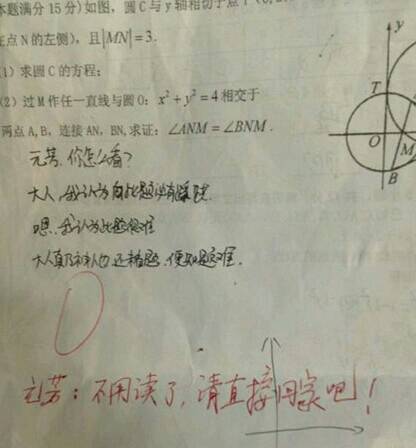 本题满分15分)如图,圆C与y轴相切于点T(0,2
在点N的左侧),且|MN|=3.
(1)求圆C的方程;
(2)过M作任一直线与圆O:x²+y²=4相交于
两点A,B,连接AN,BN,求证:∠ANM=∠BNM.
元芳,你怎么看?
大人,我认为此题
嗯,我认为此题很难
大人真乃神人也,还未看题,便知是这难.
0
元芳:不用读了,请直接回家吧!
y
T
O
M
B